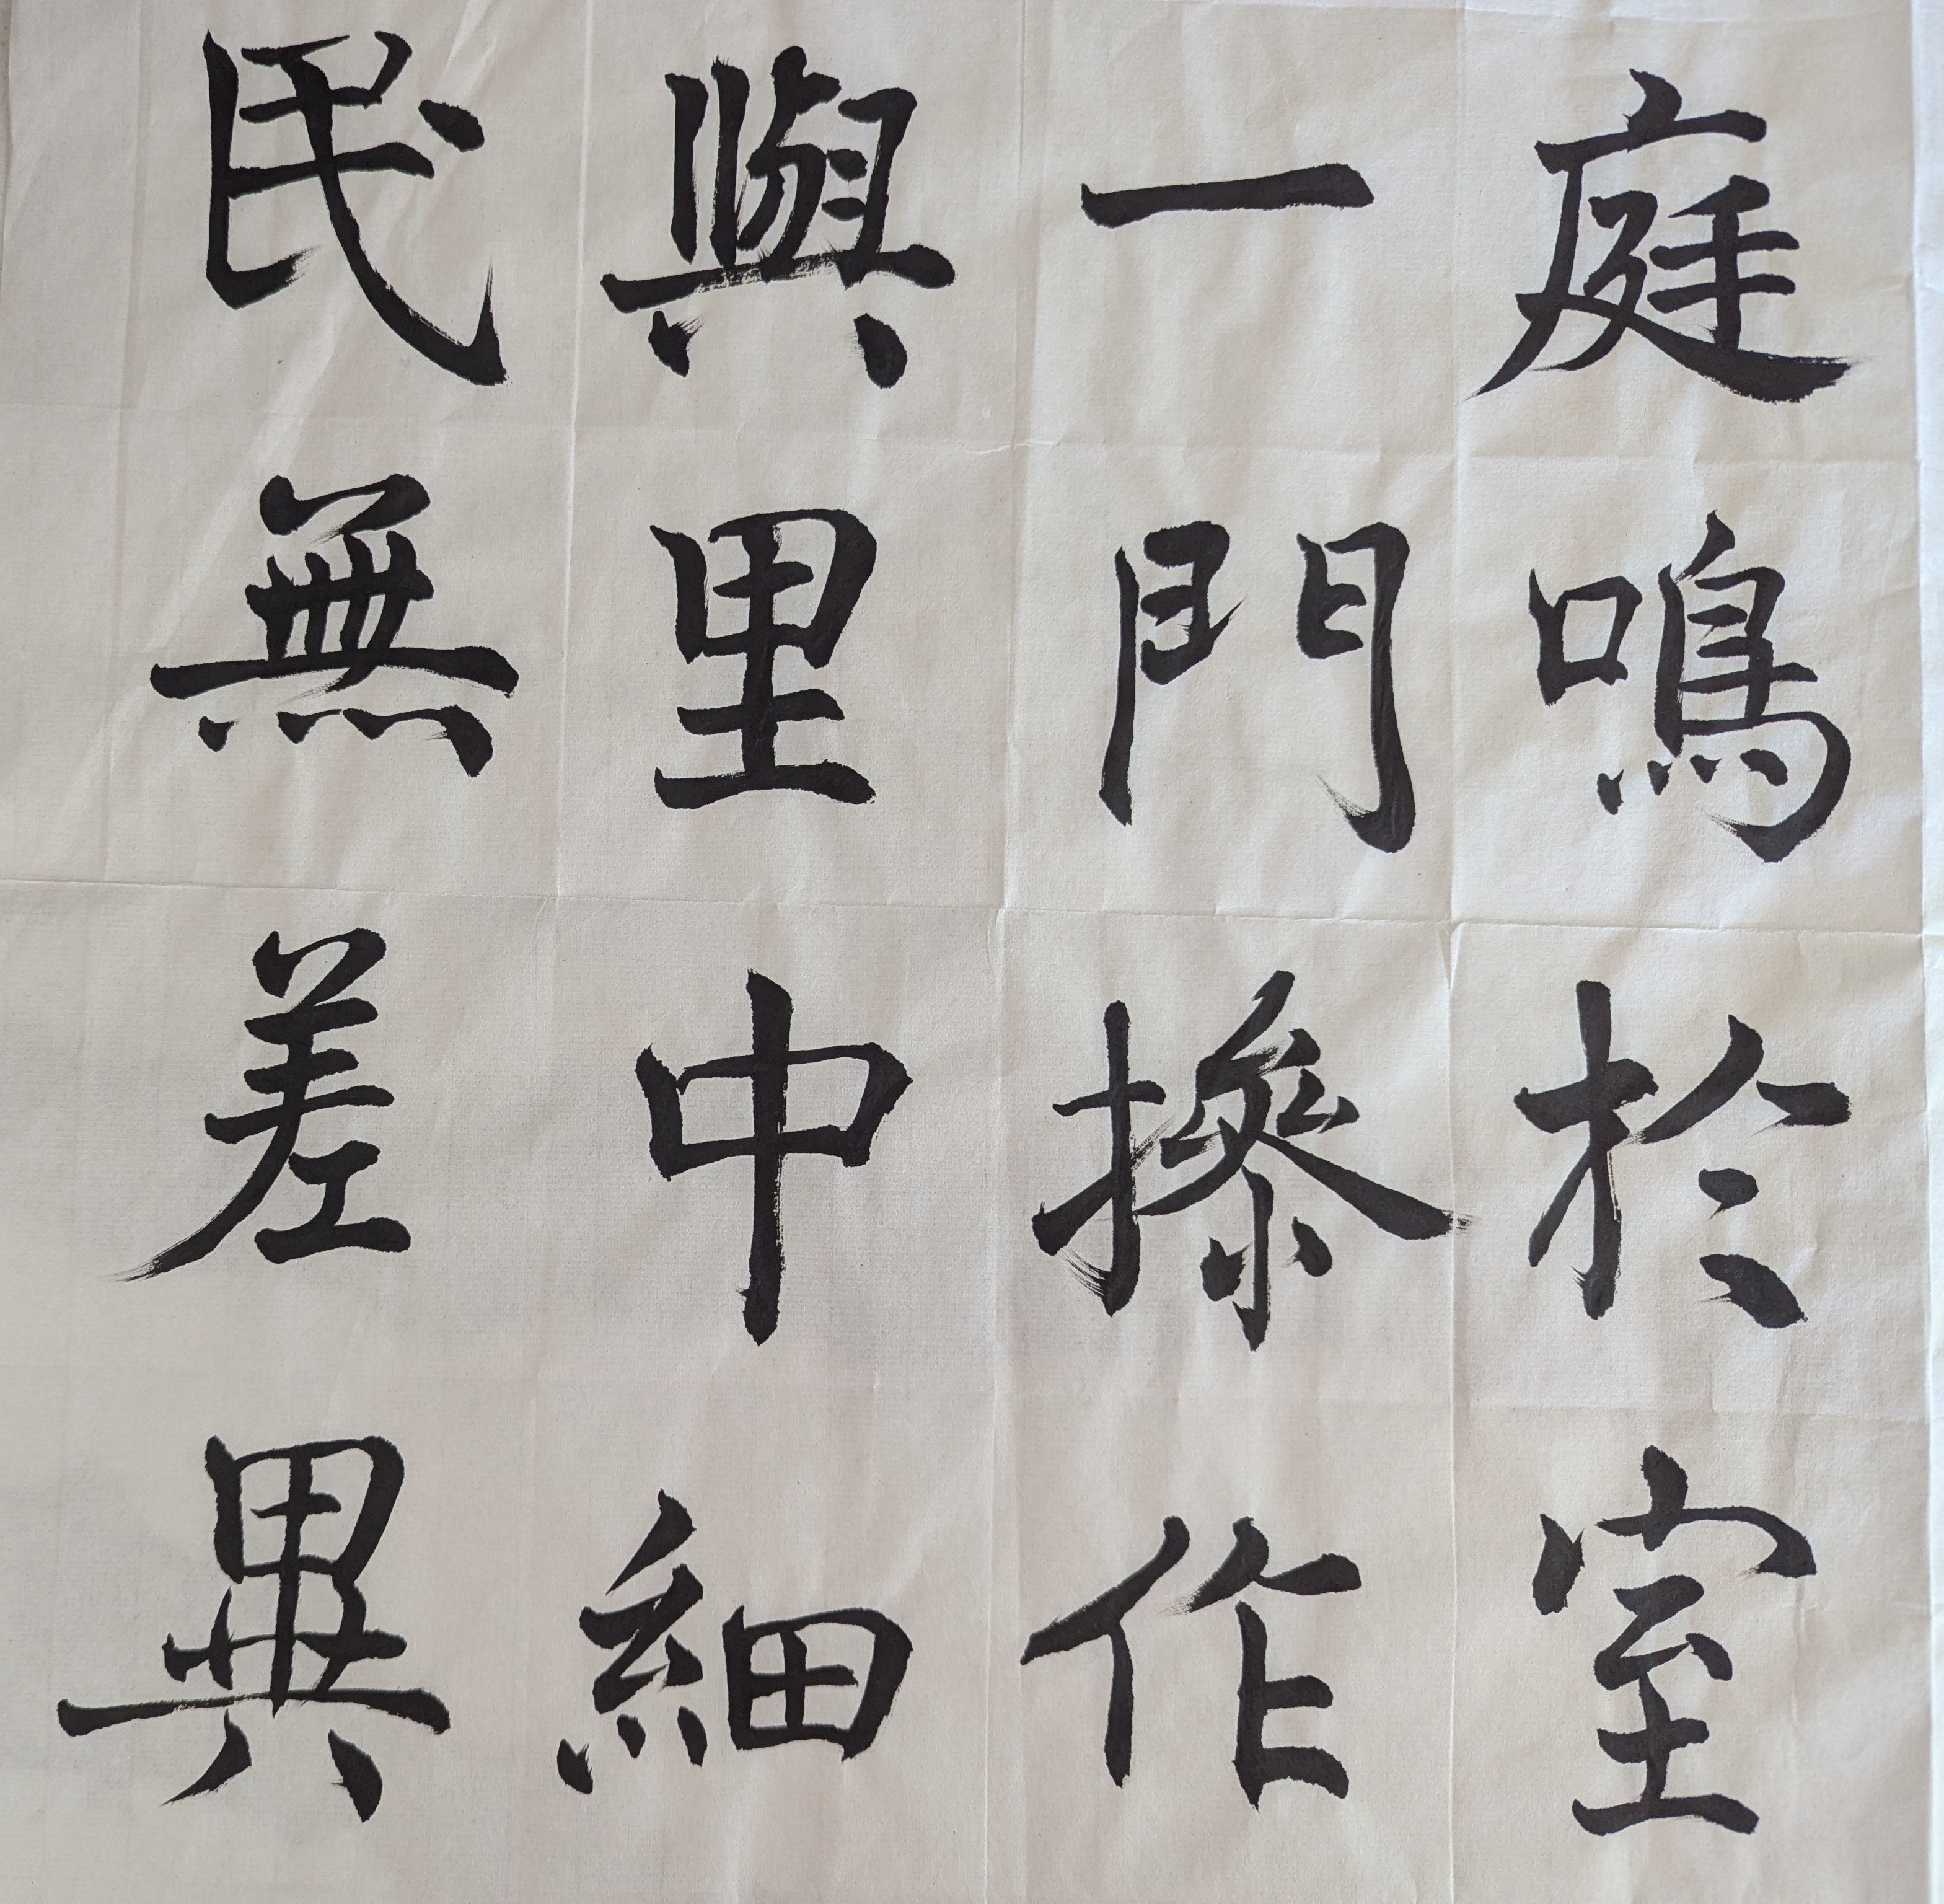 庭鳴於室
一門操作
與里中細
民無差異